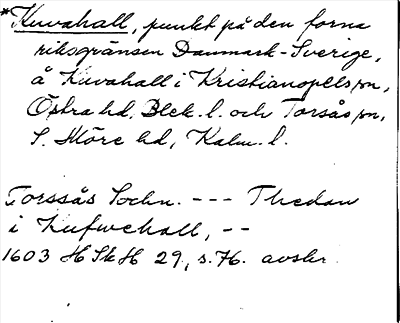 *Kuvahall, punkt på den forna
riksgränsen Danmark-Sverige,
å Kuvahall i Kristianopels sn,
Östra hd, Blek. l. och Torsås sn,
S. Möre hd, Kalm. l.
Torssås Sochn. --- Thedan
i Kufwehall, --
1603 H Sk H 29, s. 76. avskr.